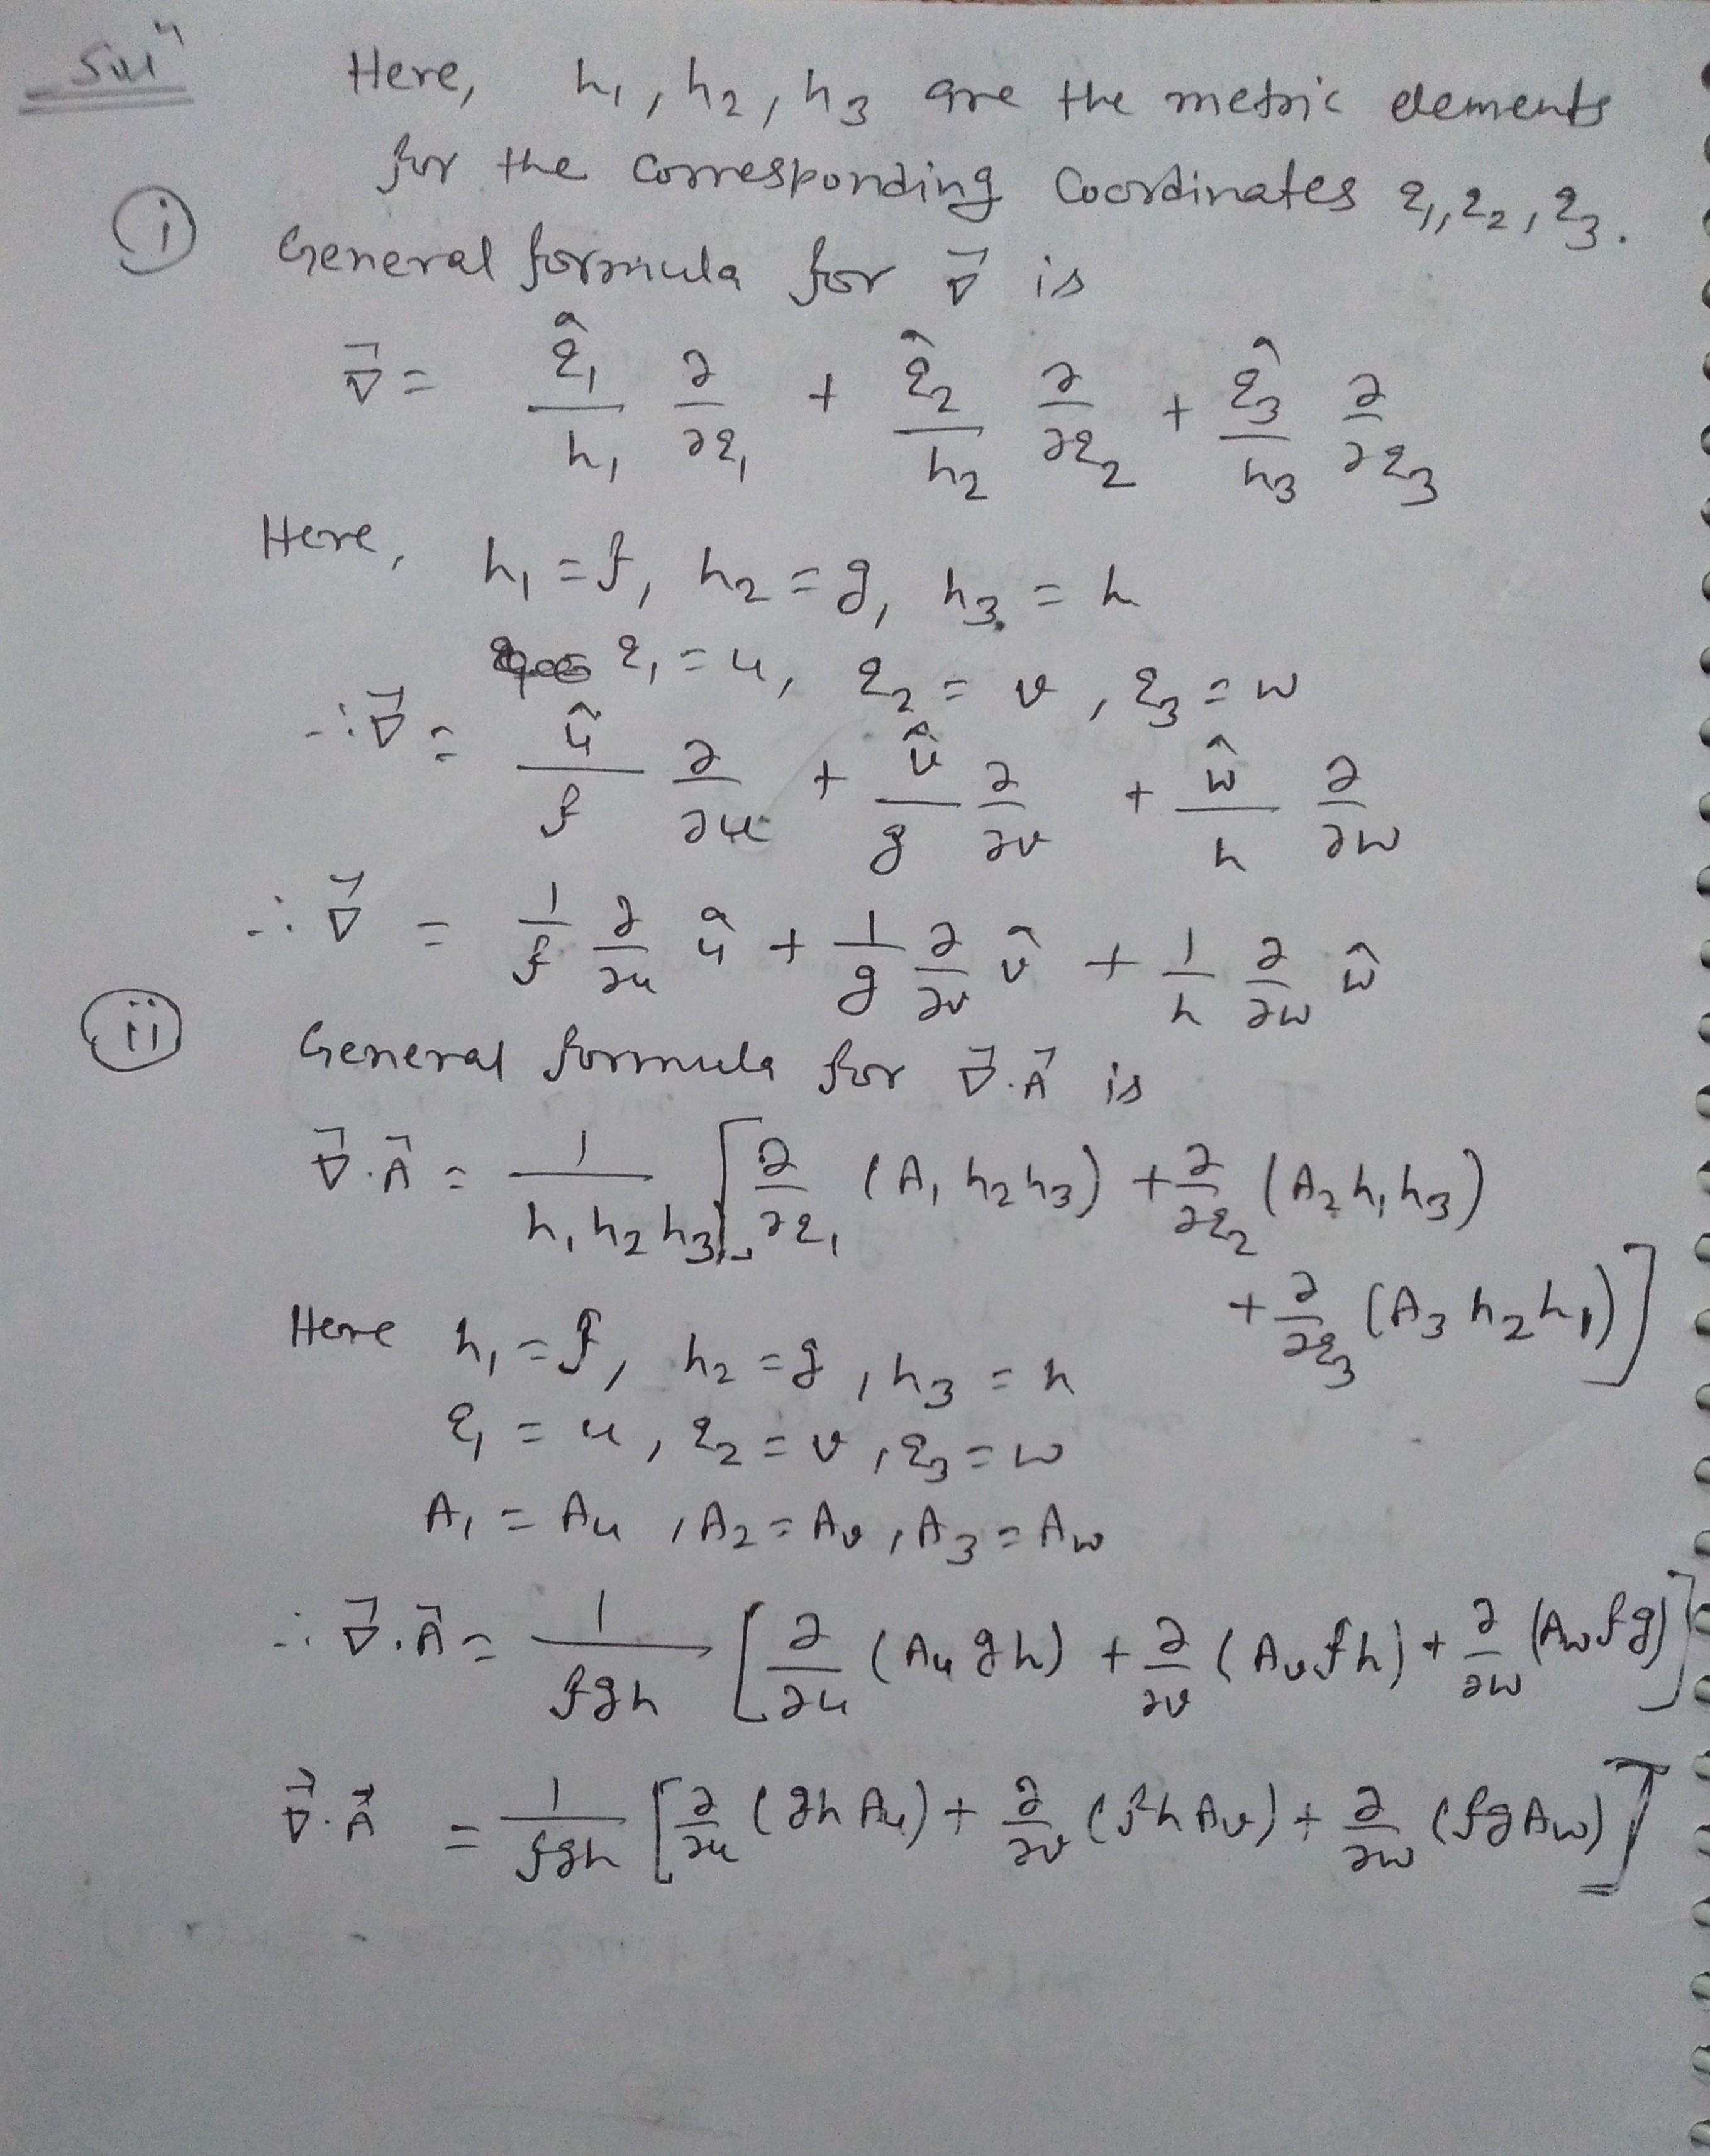 Solⁿ Here, h₁, h₂, h₃ are the metric elements
for the corresponding coordinates q₁, q₂, q₃.
(i) General formula for ∇⃗ is
∇⃗ = q̂₁/h₁ ∂/∂q₁ + q̂₂/h₂ ∂/∂q₂ + q̂₃/h₃ ∂/∂q₃
Here, h₁ = f, h₂ = g, h₃ = h
q₁ = u, q₂ = v, q₃ = w
∴ ∇⃗ = û/f ∂/∂u + v̂/g ∂/∂v + ŵ/h ∂/∂w
∴ ∇⃗ = 1/f ∂/∂u û + 1/g ∂/∂v v̂ + 1/h ∂/∂w ŵ
(ii) General formula for ∇⃗.A⃗ is
∇⃗.A⃗ = 1/h₁h₂h₃ [∂/∂q₁ (A₁h₂h₃) + ∂/∂q₂ (A₂h₁h₃)
+ ∂/∂q₃ (A₃h₂h₁)]
Here h₁ = f, h₂ = g, h₃ = h
q₁ = u, q₂ = v, q₃ = w
A₁ = Au, A₂ = Av, A₃ = Aw
∴ ∇⃗.A⃗ = 1/fgh [∂/∂u (Au gh) + ∂/∂v (Av fh) + ∂/∂w (Aw fg)]
∇⃗.A⃗ = 1/fgh [∂/∂u (gh Au) + ∂/∂v (fh Av) + ∂/∂w (fg Aw)]